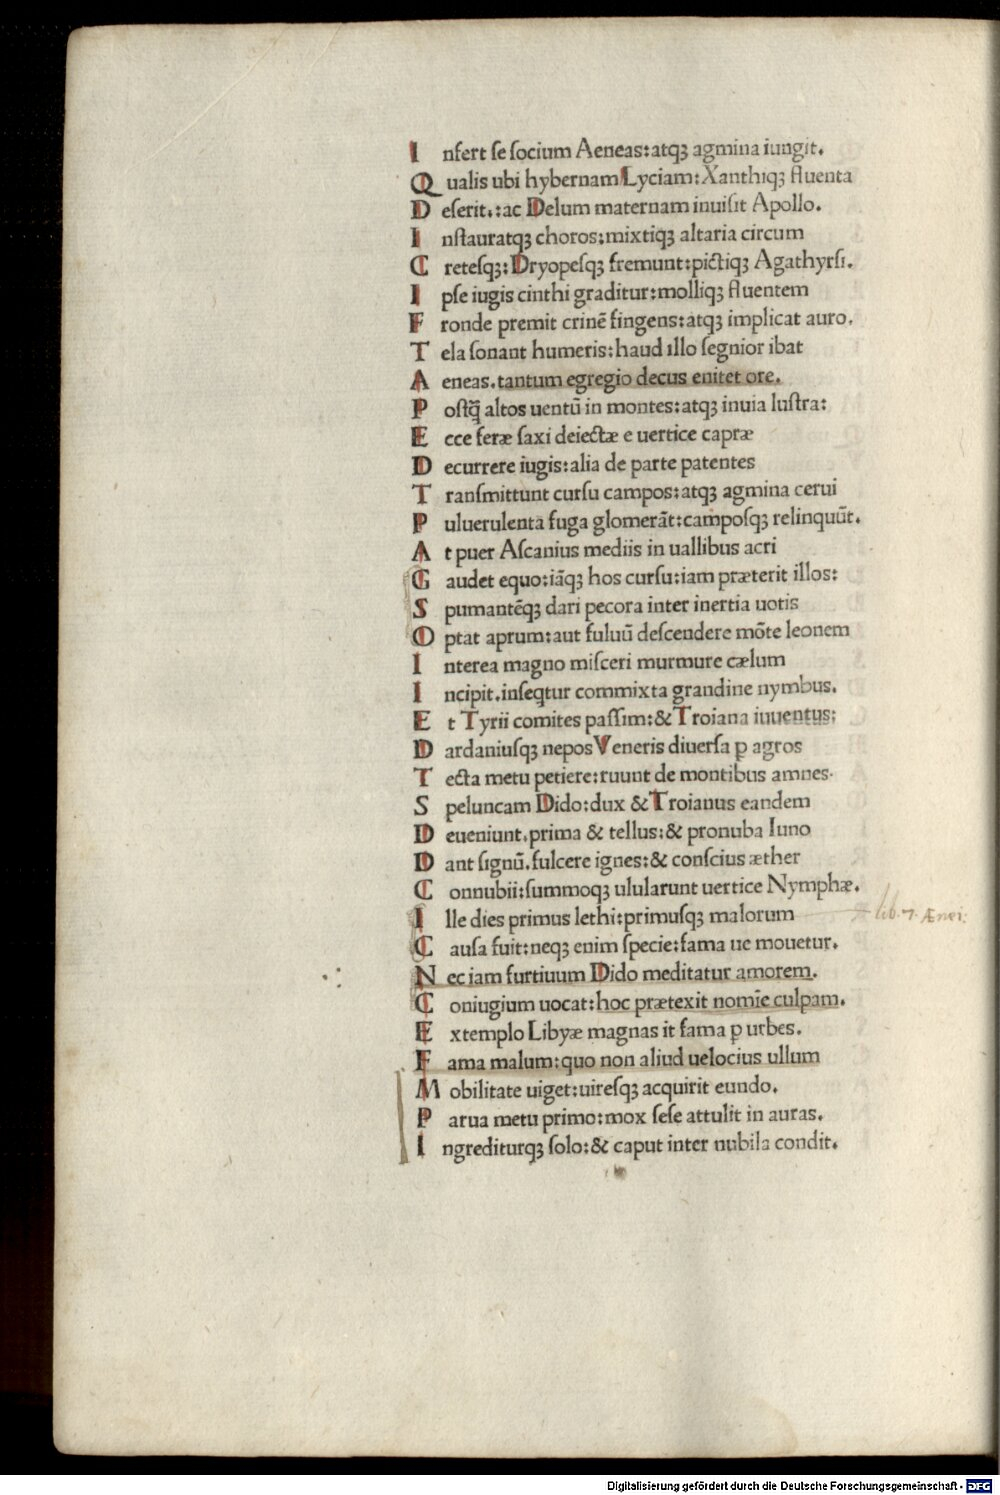 I nfert se socium Aeneas: atqꝫ agmina iungit.
Q ualis ubi hybernam Lyciam: Xanthiqꝫ fluenta
D eserit.: ac Delum maternam inuisit Apollo.
I nstauratqꝫ choros: mixtiqꝫ altaria circum
C retesqꝫ: Dryopesqꝫ fremunt: pictiqꝫ Agathyrsi.
I pse iugis cinthi graditur: molliqꝫ fluentem
F ronde premit crinē fingens: atqꝫ implicat auro.
T ela sonant humeris: haud illo segnior ibat
A eneas. tantum egregio decus enitet ore.
P ostq̄ altos uentū in montes: atqꝫ inuia lustra:
E cce feræ saxi deiectæ e uertice capræ
D ecurrere iugis: alia de parte patentes
T ransmittunt cursu campos: atqꝫ agmina cerui
P uluerulenta fuga glomerāt: camposqꝫ relinquūt.
A t puer Ascanius mediis in uallibus acri
G audet equo: iāqꝫ hos cursu: iam præterit illos:
S pumantēqꝫ dari pecora inter inertia uotis
O ptat aprum: aut fuluū descendere mōte leonem
I nterea magno misceri murmure cælum
I ncipit. inseqtur commixta grandine nymbus.
E t Tyrii comites passim: & Troiana iuuentus:
D ardaniusqꝫ nepos Veneris diuersa ꝑ agros
T ecta metu petiere: ruunt de montibus amnes.
S peluncam Dido: dux & Troianus eandem
D eueniunt. prima & tellus: & pronuba Iuno
D ant signū. fulcere ignes: & conscius æther
C onnubii: summoqꝫ ulularunt uertice Nymphæ.
I lle dies primus lethi: primusqꝫ malorum lib. 7. Ænei:
C ausa fuit: neqꝫ enim specie: fama ue mouetur.
N ec iam furtiuum Dido meditatur amorem.
C oniugium uocat: hoc prætexit nomīe culpam.
E xtemplo Libyæ magnas it fama ꝑ urbes.
F ama malum: quo non aliud uelocius ullum
M obilitate uiget: uiresqꝫ acquirit eundo.
P arua metu primo: mox sese attulit in auras.
I ngrediturqꝫ solo: & caput inter nubila condit.
Digitalisierung gefördert durch die Deutsche Forschungsgemeinschaft - DFG